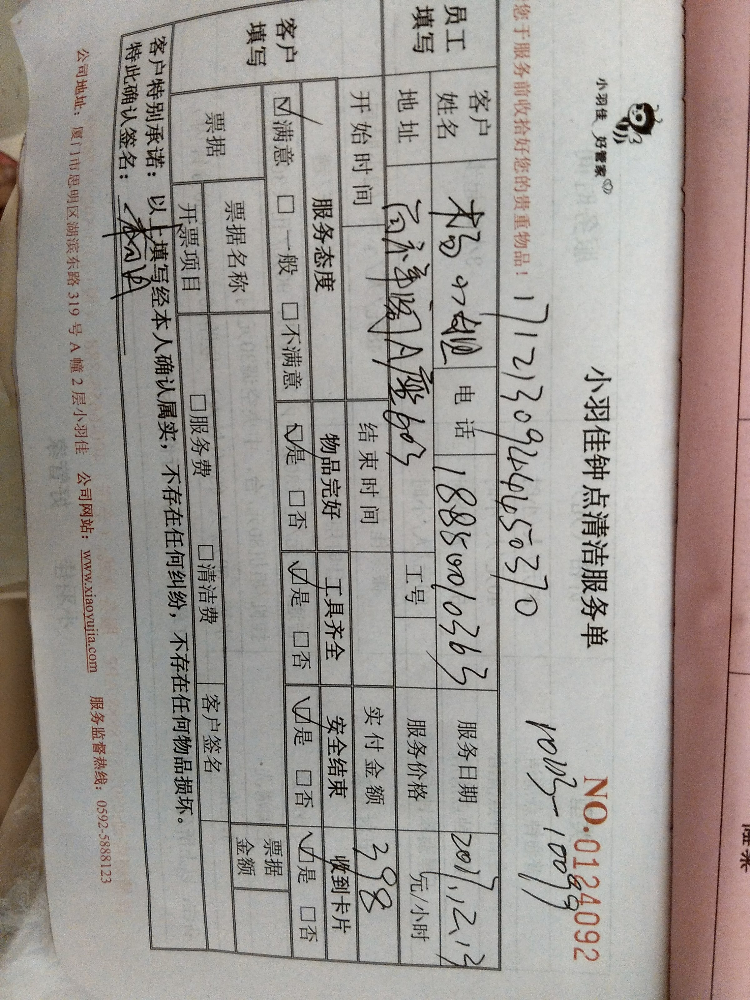 小羽佳 好管家
小羽佳钟点清洁服务单
NO.0124092
您于服务前收拾好您的贵重物品!
171213092446450370
员工填写
客户姓名
电话 18850010363
服务日期 2017.12.13
地址
A座603
工号
服务价格 元/小时
开始时间
结束时间
实付金额 398
客户填写
服务态度 物品完好 工具齐全 安全结束 收到卡片
☑满意 □一般 □不满意 ☑是 □否 ☑是 □否 ☑是 □否 ☑是 □否
票据 票据名称 票据金额
开票项目 □服务费 □清洁费 客户签名
客户特别承诺:以上填写经本人确认属实,不存在任何纠纷,不存在任何物品损坏。
特此确认签名:
公司地址:厦门市思明区湖滨东路 319 号 A 幢 2 层小羽佳 公司网站:www.xiaoyujia.com 服务监督热线:0592-5888123